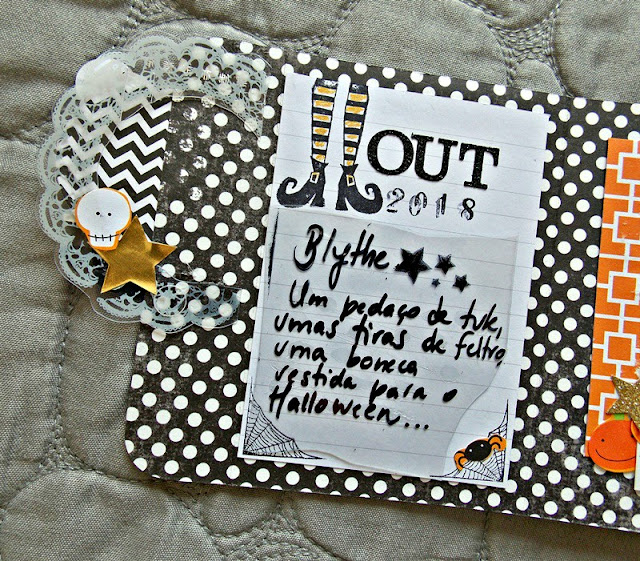 OUT
2018
Blythe
Um pedaço de tule,
umas tiras de feltro,
uma boneca
vestida para o
Halloween...